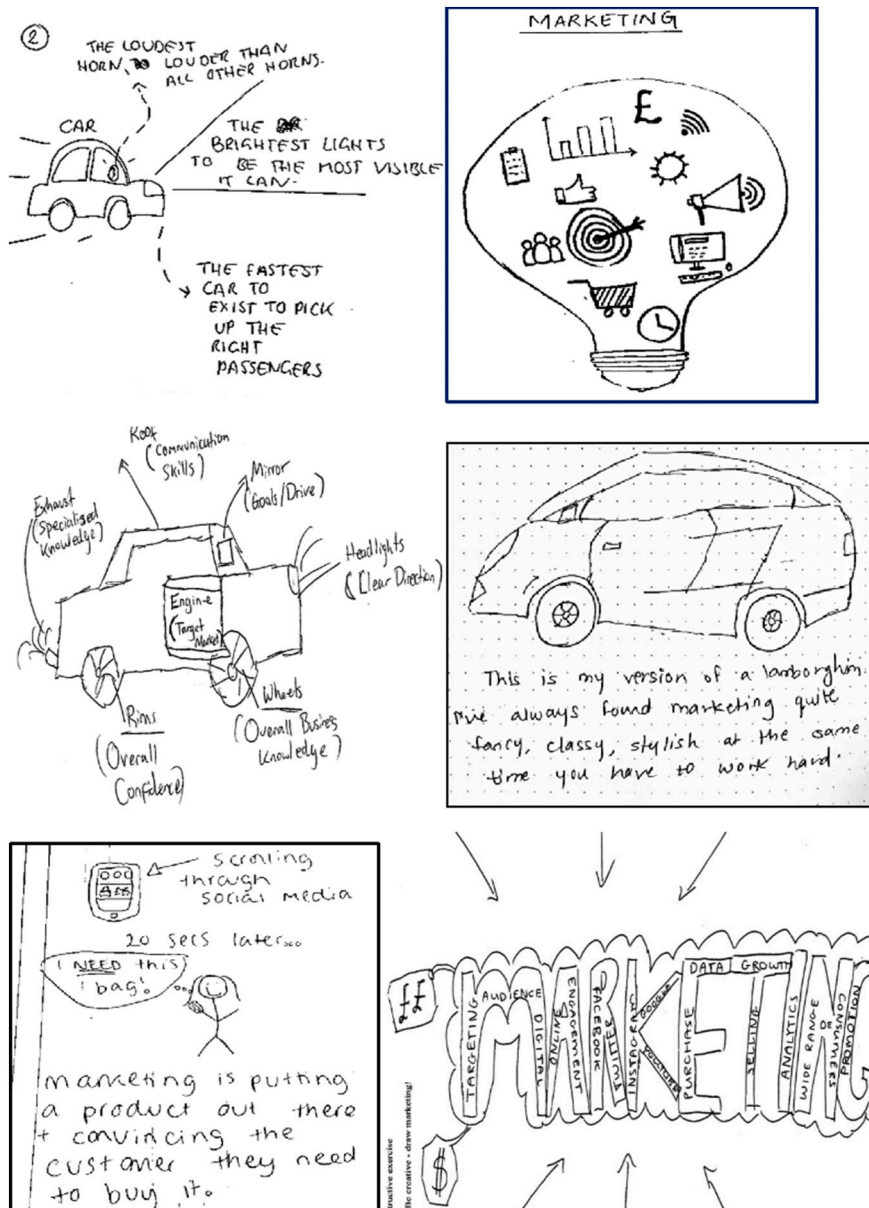 2
THE LOUDEST
HORN, LOUDER THAN
ALL OTHER HORNS.
CAR
THE
BRIGHTEST LIGHTS
TO BE THE MOST VISIBLE
IT CAN.
THE FASTEST
CAR TO
EXIST TO PICK
UP THE
RIGHT
PASSENGERS
MARKETING
£
Roof
(Communication
Skills)
Mirror
(Goals/Drive)
Exhaust
(Specialised
Knowledge)
Headlights
(Clear Direction)
Engine
(Target
Market)
Rims
(Overall
Confidence)
Wheels
(Overall Business
Knowledge)
This is my version of a lamborghin
I've always found marketing quite
fancy, classy, stylish at the same
time you have to work hard.
scrolling
through
social media
20 secs later...
I NEED this
bag!
marketing is putting
a product out there
+ convincing the
customer they need
to buy it.
££
MARKETING
TARGETING
AUDIENCE
DIGITAL
ONLINE
ENGAGEMENT
FACEBOOK
TWITTER
INSTAGRAM
GOOGLE
YOUTUBE
PURCHASE
DATA GROWTH
SELLING
ANALYTICS
WIDE RANGE
OF
CONSUMERS
PROMOTION
$
tructive exercise
Be creative - draw marketing!